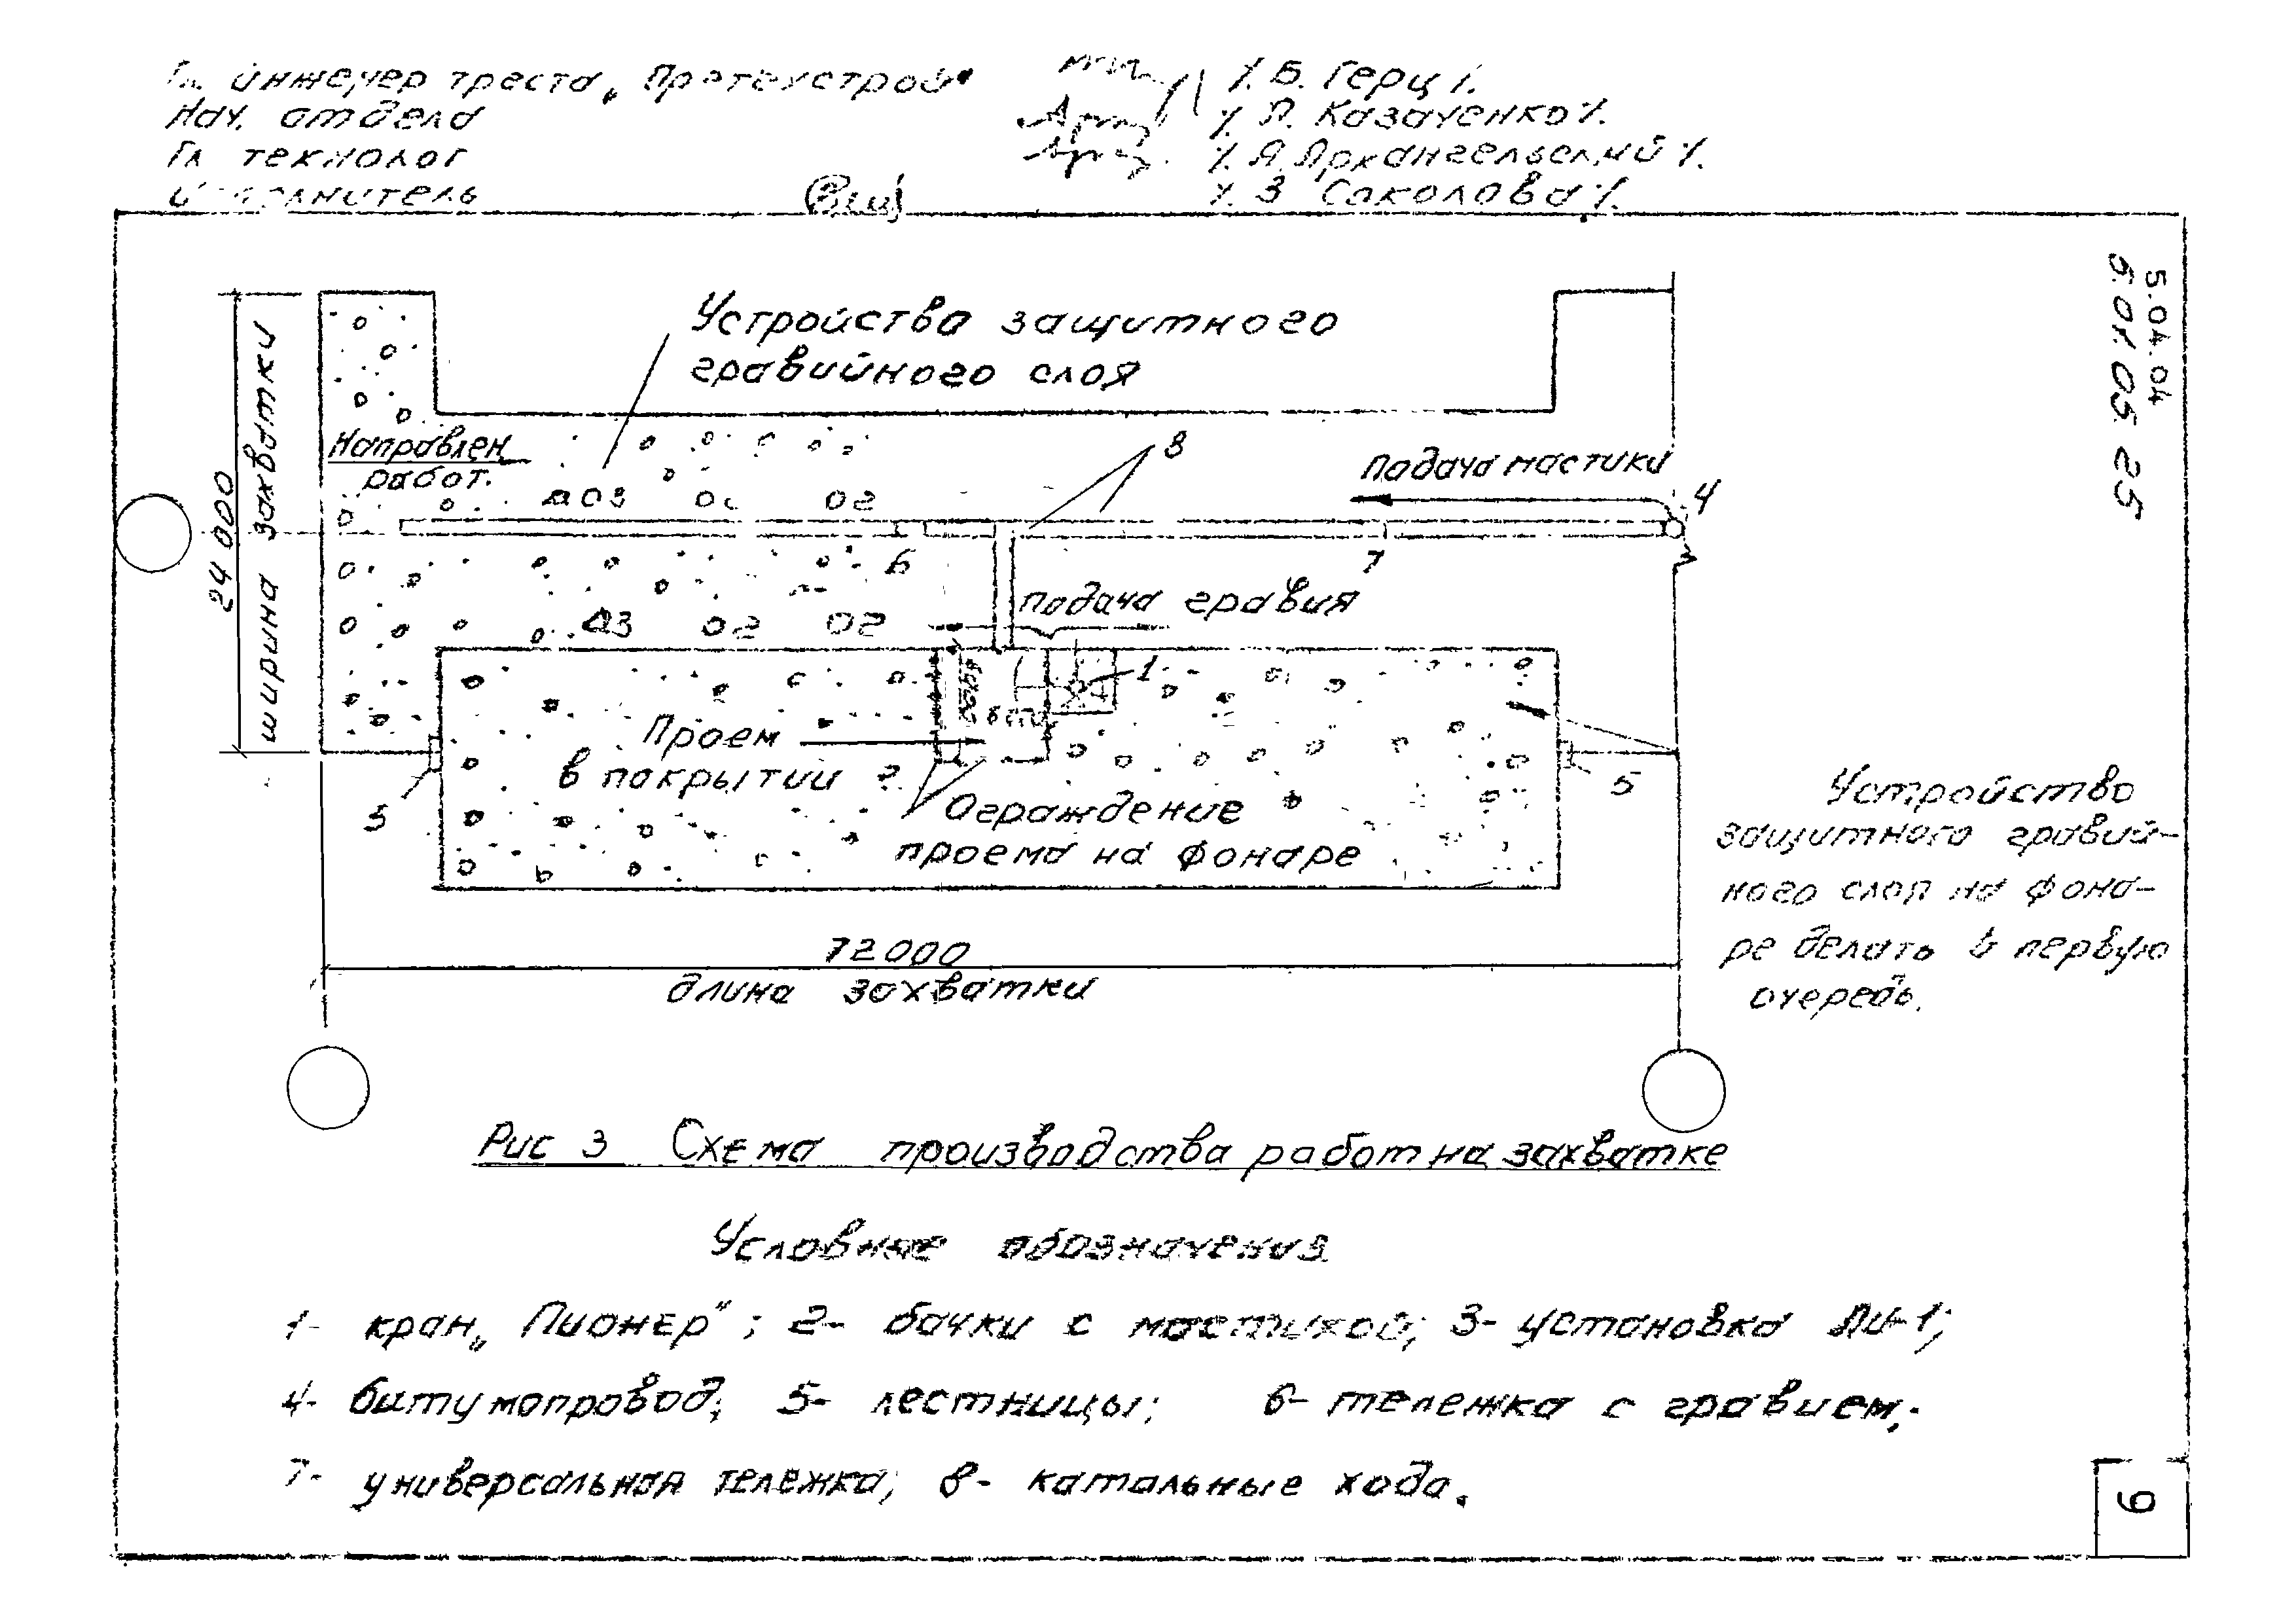 Гл. инженер треста „Протехстрой"
/. Б. Герц /.
Нач. отдела
/. Л. Казаченко /.
Гл технолог
/. Я Архангельский /.
Исполнитель
/. З Соколова /.
5.04.04
6.01.05.25
Устройства защитного
гравийного слоя
ширина захватки
24 000
Направлен
работ.
8
Подача мастики
4
2
3
6
7
подача гравия
1
Проем
в покрытии
2
Ограждение
проема на фонаре
5
5
Устройство
защитного гравий-
ного слоя на фона-
ре делать в первую
очередь.
72000
длина захватки
Рис 3 Схема производства работ на захватке
Условные обозначения
1- кран „Пионер"; 2- бачки с мастикой; 3- установка
4- битумопровод; 5- лестницы; 6- тележка с гравием;
7- универсальная тележка; 8- катальные хода.
9